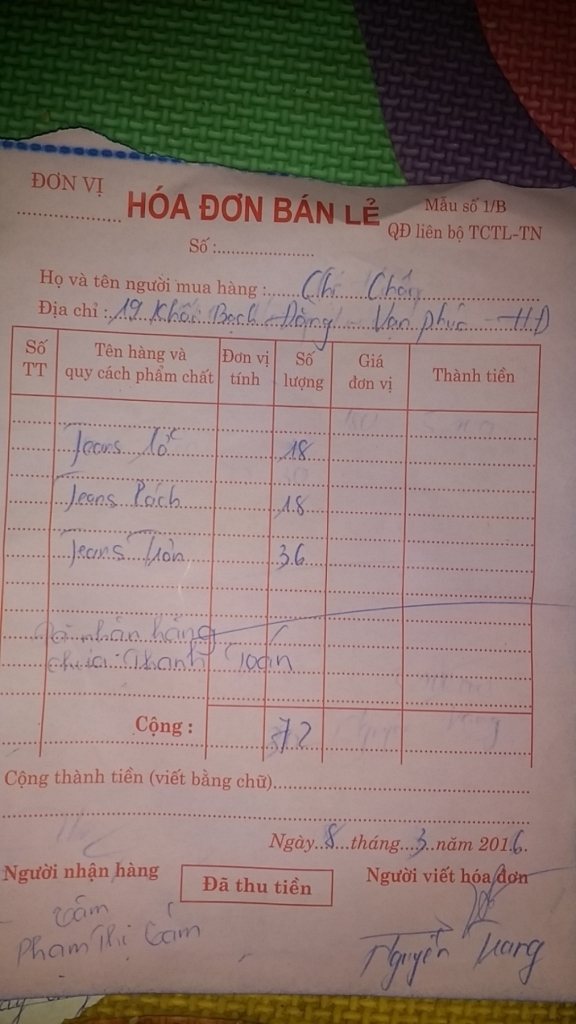 ĐƠN VỊ
HÓA ĐƠN BÁN LẺ
Mẫu số 1/B
QĐ liên bộ TCTL-TN
Số:
Họ và tên người mua hàng: Chị
Địa chỉ: 19 Khâu Bạch Đằng - Vạn phúc - HĐ
Số TT Tên hàng và quy cách phẩm chất Đơn vị tính Số lượng Giá đơn vị Thành tiền
Jeans 18
Jeans Rách 18
Jeans trơn 36
Đã nhận hàng
chưa Thanh Toán
Cộng: 72
Cộng thành tiền (viết bằng chữ)
Ngày 8 tháng 3 năm 2016.
Người nhận hàng
Đã thu tiền
Người viết hóa đơn
Phạm Thị Cẩm
Nguyễn